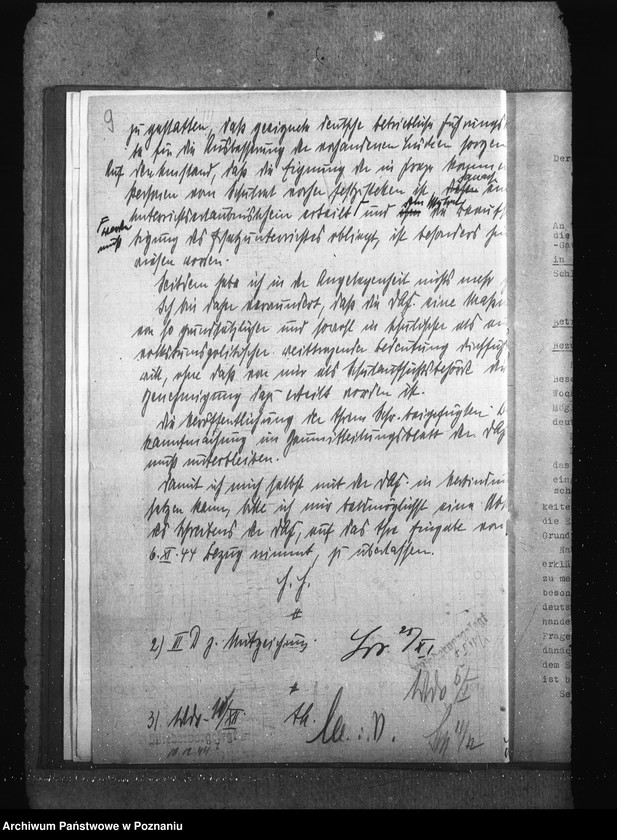 9
zu gestatten, daß geeignete deutsche betriebliche Führungs
te für die Ausbesserung der vorhandenen Lücken sorgen
Auf den Umstand, daß die Eignung der in Frage komme
Personen vom Schulrat vorher festzustellen ist, danach ein
Unterrichtserlaubnisschein erteilt werden muß und dem Schulrat die Beauf
tigung des Ersatzunterrichtes obliegt, ist besonders hin
wiesen worden.
Seitdem habe ich in der Angelegenheit nichts mehr
Ich bin daher verwundert, daß die DAF. eine Maßn
von so grundsätzlicher und sowohl in schulischer als
volkstumspolitischer weittragender Bedeutung durchfüh
will, ohne daß von mir als Schulaufsichtsbehörde die
Genehmigung dazu erteilt worden ist.
Die Veröffentlichung der Ihrem Schr. beigefügten B
kanntmachung im Gaumitteilungsblatt der DAF
muß unterbleiben.
Damit ich mich selbst mit der DAF. in Verbindun
setzen kann, bitte ich mir baldmöglichst eine Ab
des Schreibens der DAF, auf das Ihre Eingabe vom
6.XI.44 Bezug nimmt, zu überlassen.
2) III D z. Mitzeichnung.
3) Wdv.
i. V.
Der
An
die
-Ga
in
Schl
Betr
Bezu
Besc
Woc
Mög
deut
das
ein
sch
keite
die E
Grund
Na
erklä
zu me
beson
deuts
hande
Frage
dansc
dem S
ist b
Se
Archiwum Państwowe w Poznaniu